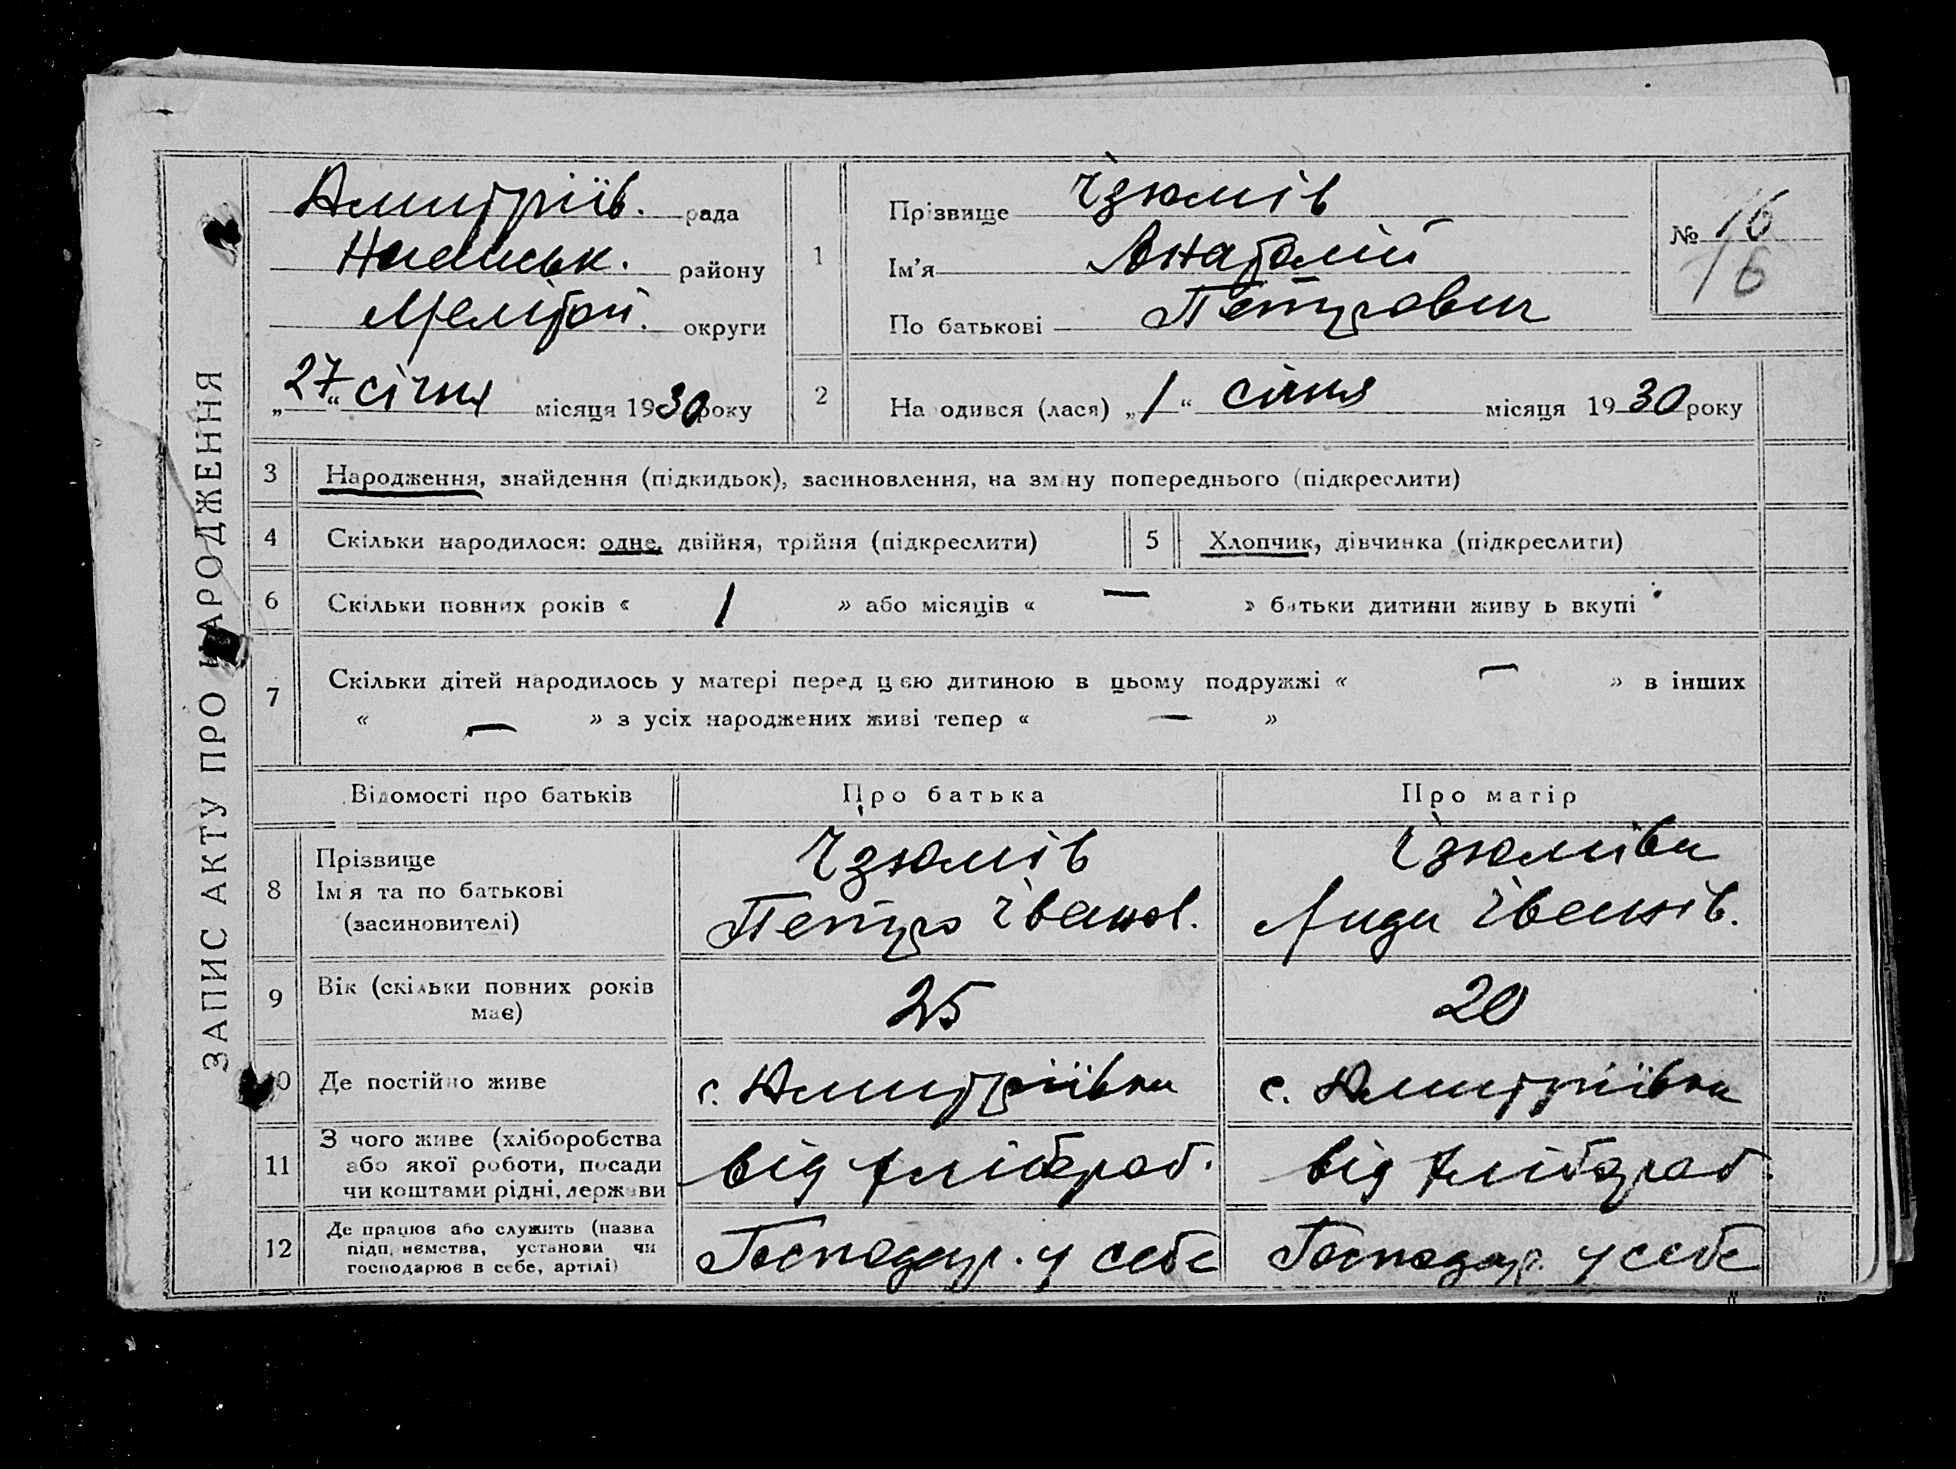 ЗАПИС АКТУ ПРО НАРОДЖЕННЯ
Дмитріїв. рада
Ногайськ. району
Мелітоп. округи
„27“ січня місяця 1930 року
1
Прізвище Ізюмів
Ім'я Анатолій
По батькові Петрович
№ 16
16
2
Народився (лася) „1“ січня місяця 1930 року
3 Народження, знайдення (підкидьок), засиновлення, на зміну попереднього (підкреслити)
4 Скільки народилося: одне, двійня, трійня (підкреслити)
5 Хлопчик, дівчинка (підкреслити)
6 Скільки повних років « 1 » або місяців « — » батьки дитини живуть вкупі
7 Скільки дітей народилось у матері перед цією дитиною в цьому подружжі « — » в інших
« — » з усіх народжених живі тепер « — »
Відомості про батьків Про батька Про матір
8 Прізвище
Ім'я та по батькові
(засиновителі)
Ізюмів
Петро Іванов.
Ізюміва
Лида Іванів.
9 Вік (скільки повних років
має)
25
20
10 Де постійно живе
с. Дмитріївка
с. Дмитріївка
11 З чого живе (хліборобства
або якої роботи, посади
чи коштами рідні, держави
від хлібороб.
від хлібороб.
12 Де працює або служить (назва
підприємства, установи чи
господарює в себе, артілі)
Господар. у себе
Господар. у себе